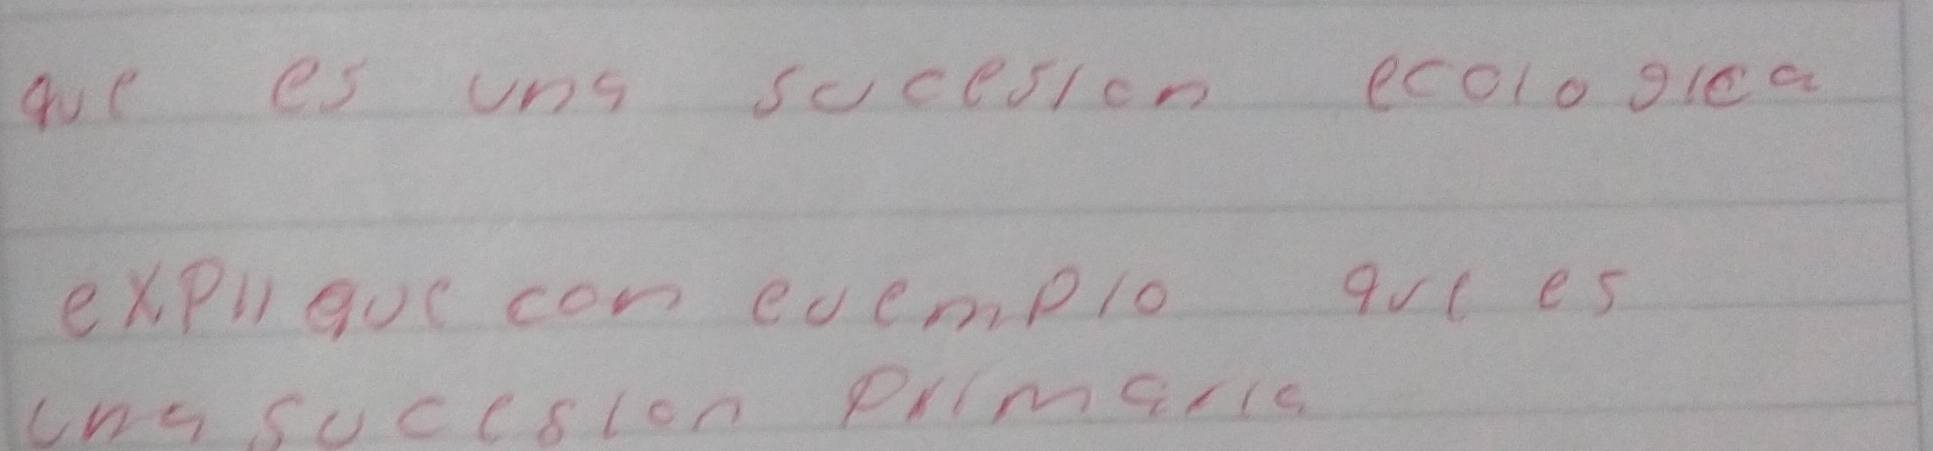 que es una sucesion ecologica
explique con evemplo que es
una sucesion primaria